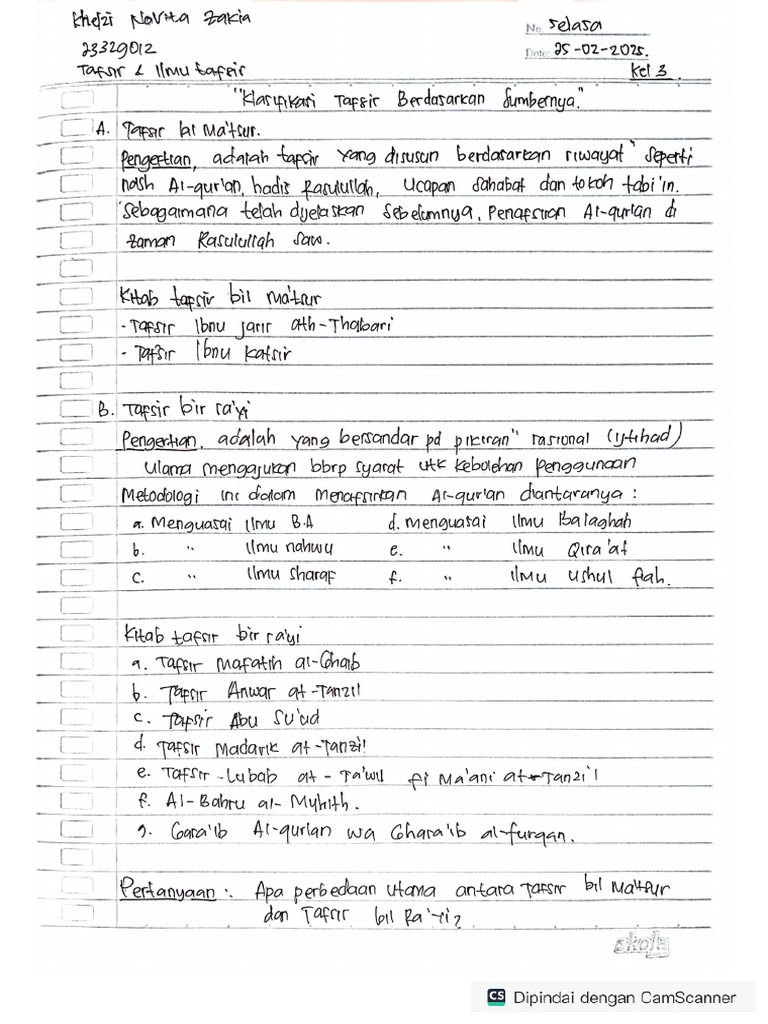 Khefzi Novita Zakia
No. Selasa
23329012
Date: 25-02-2025.
Tafsir & Ilmu tafsir
Kel 3.
"Klasifikasi Tafsir Berdasarkan Sumbernya."
A. Tafsir bil Ma'tsur.
Pengertian, adalah tafsir yang disusun berdasarkan riwayat" seperti
nash Al-qur'an, hadis Rasulullah, Ucapan Sahabat dan tokoh tabi'in.
Sebagaimana telah dijelaskan Sebelumnya, Penafsiran Al-qur'an di
zaman Rasulullah Saw.
Kitab tafsir bil ma'tsur
- Tafsir Ibnu jarir ath-Thabari
- Tafsir Ibnu Katsir
B. Tafsir bir ra'yi
Pengertian, adalah yang bersandar pd pikiran" rasional (ijtihad)
Ulama mengajukan bbrp syarat utk kebolehan penggunaan
Metodologi ini dalam menafsirkan Al-qur'an diantaranya :
a. Menguasai Ilmu B.A d. menguasai Ilmu Balaghah
b. " Ilmu nahwu e. " Ilmu Qira'at
c. " Ilmu sharaf f. " Ilmu Ushul fiqh.
Kitab tafsir bir ra'yi
a. Tafsir Mafatih al-Ghaib
b. Tafsir Anwar at-Tanzil
c. Tafsir Abu Su'ud
d. Tafsir Madarik at-Tanzil
e. Tafsir-Lubab at-Ta'wil fi Ma'ani at-Tanzi'l
f. Al-Bahru al-Muhith.
g. Gara'ib Al-qur'an wa Ghara'ib al-furqan.
Pertanyaan : Apa perbedaan Utama antara Tafsir bil Ma'tsur
dan Tafsir bil Ra'yi?
skola
CS Dipindai dengan CamScanner